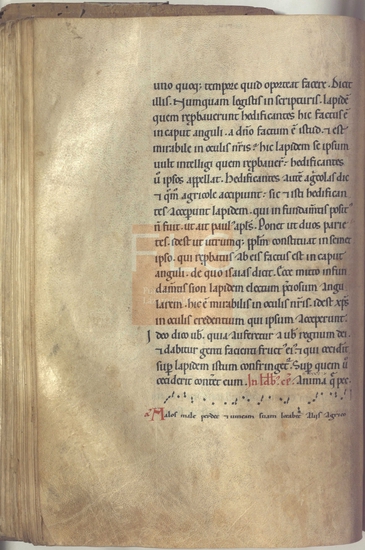 uno quoq; tempore quid oporteat facere. Dicit
illis. Numquam legistis in scripturis. lapidē
quem reprobauerunt hedificantes hic factus ē
in caput anguli. a dño factum ē istud. & est
mirabile in oculis nr̄is. hic lapidem se ipsum
uult intelligi quem hedificantes
ipsos appellat. Hedificantes autē agricolas dic
agricole accipiunt. sic & isti hedifican
tes acceperunt lapidem. qui in fundamtis
ut ait Ponet ut duos parie
tes. idest ut utrumq; constituat in semet
ipso. qui ab eis factus est in caput
anguli. de quo isaias dicit. Ecce mitto in fun
damtis sion lapidem electum angu
larem. hic ē mirabilis in oculis nr̄is. idest
in oculis credentium qui ipsum acceperunt.
Ideo dico uob. quia auferetur a uob regnum dei
& dabitur genti facienti & qui ceciderit
lapidem istum confringet. quem
ceciderit conteret eum. Anima
Malos male perdet & uineam suam locabit Aliis Agrico